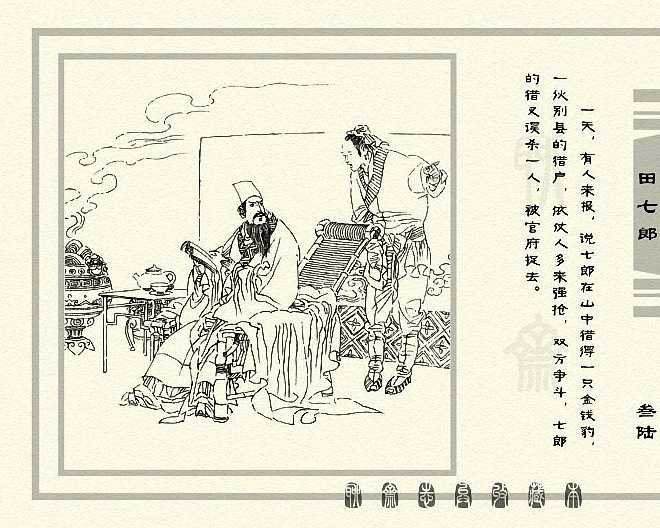 一天，有人来报，说七郎在山中猎得一只金钱豹，
一伙别县的猎户，依仗人多来强抢，双方争斗，七郎
的猎叉误杀一人，被官府捉去。
田七郎
叁陆
聊斋志异收藏本